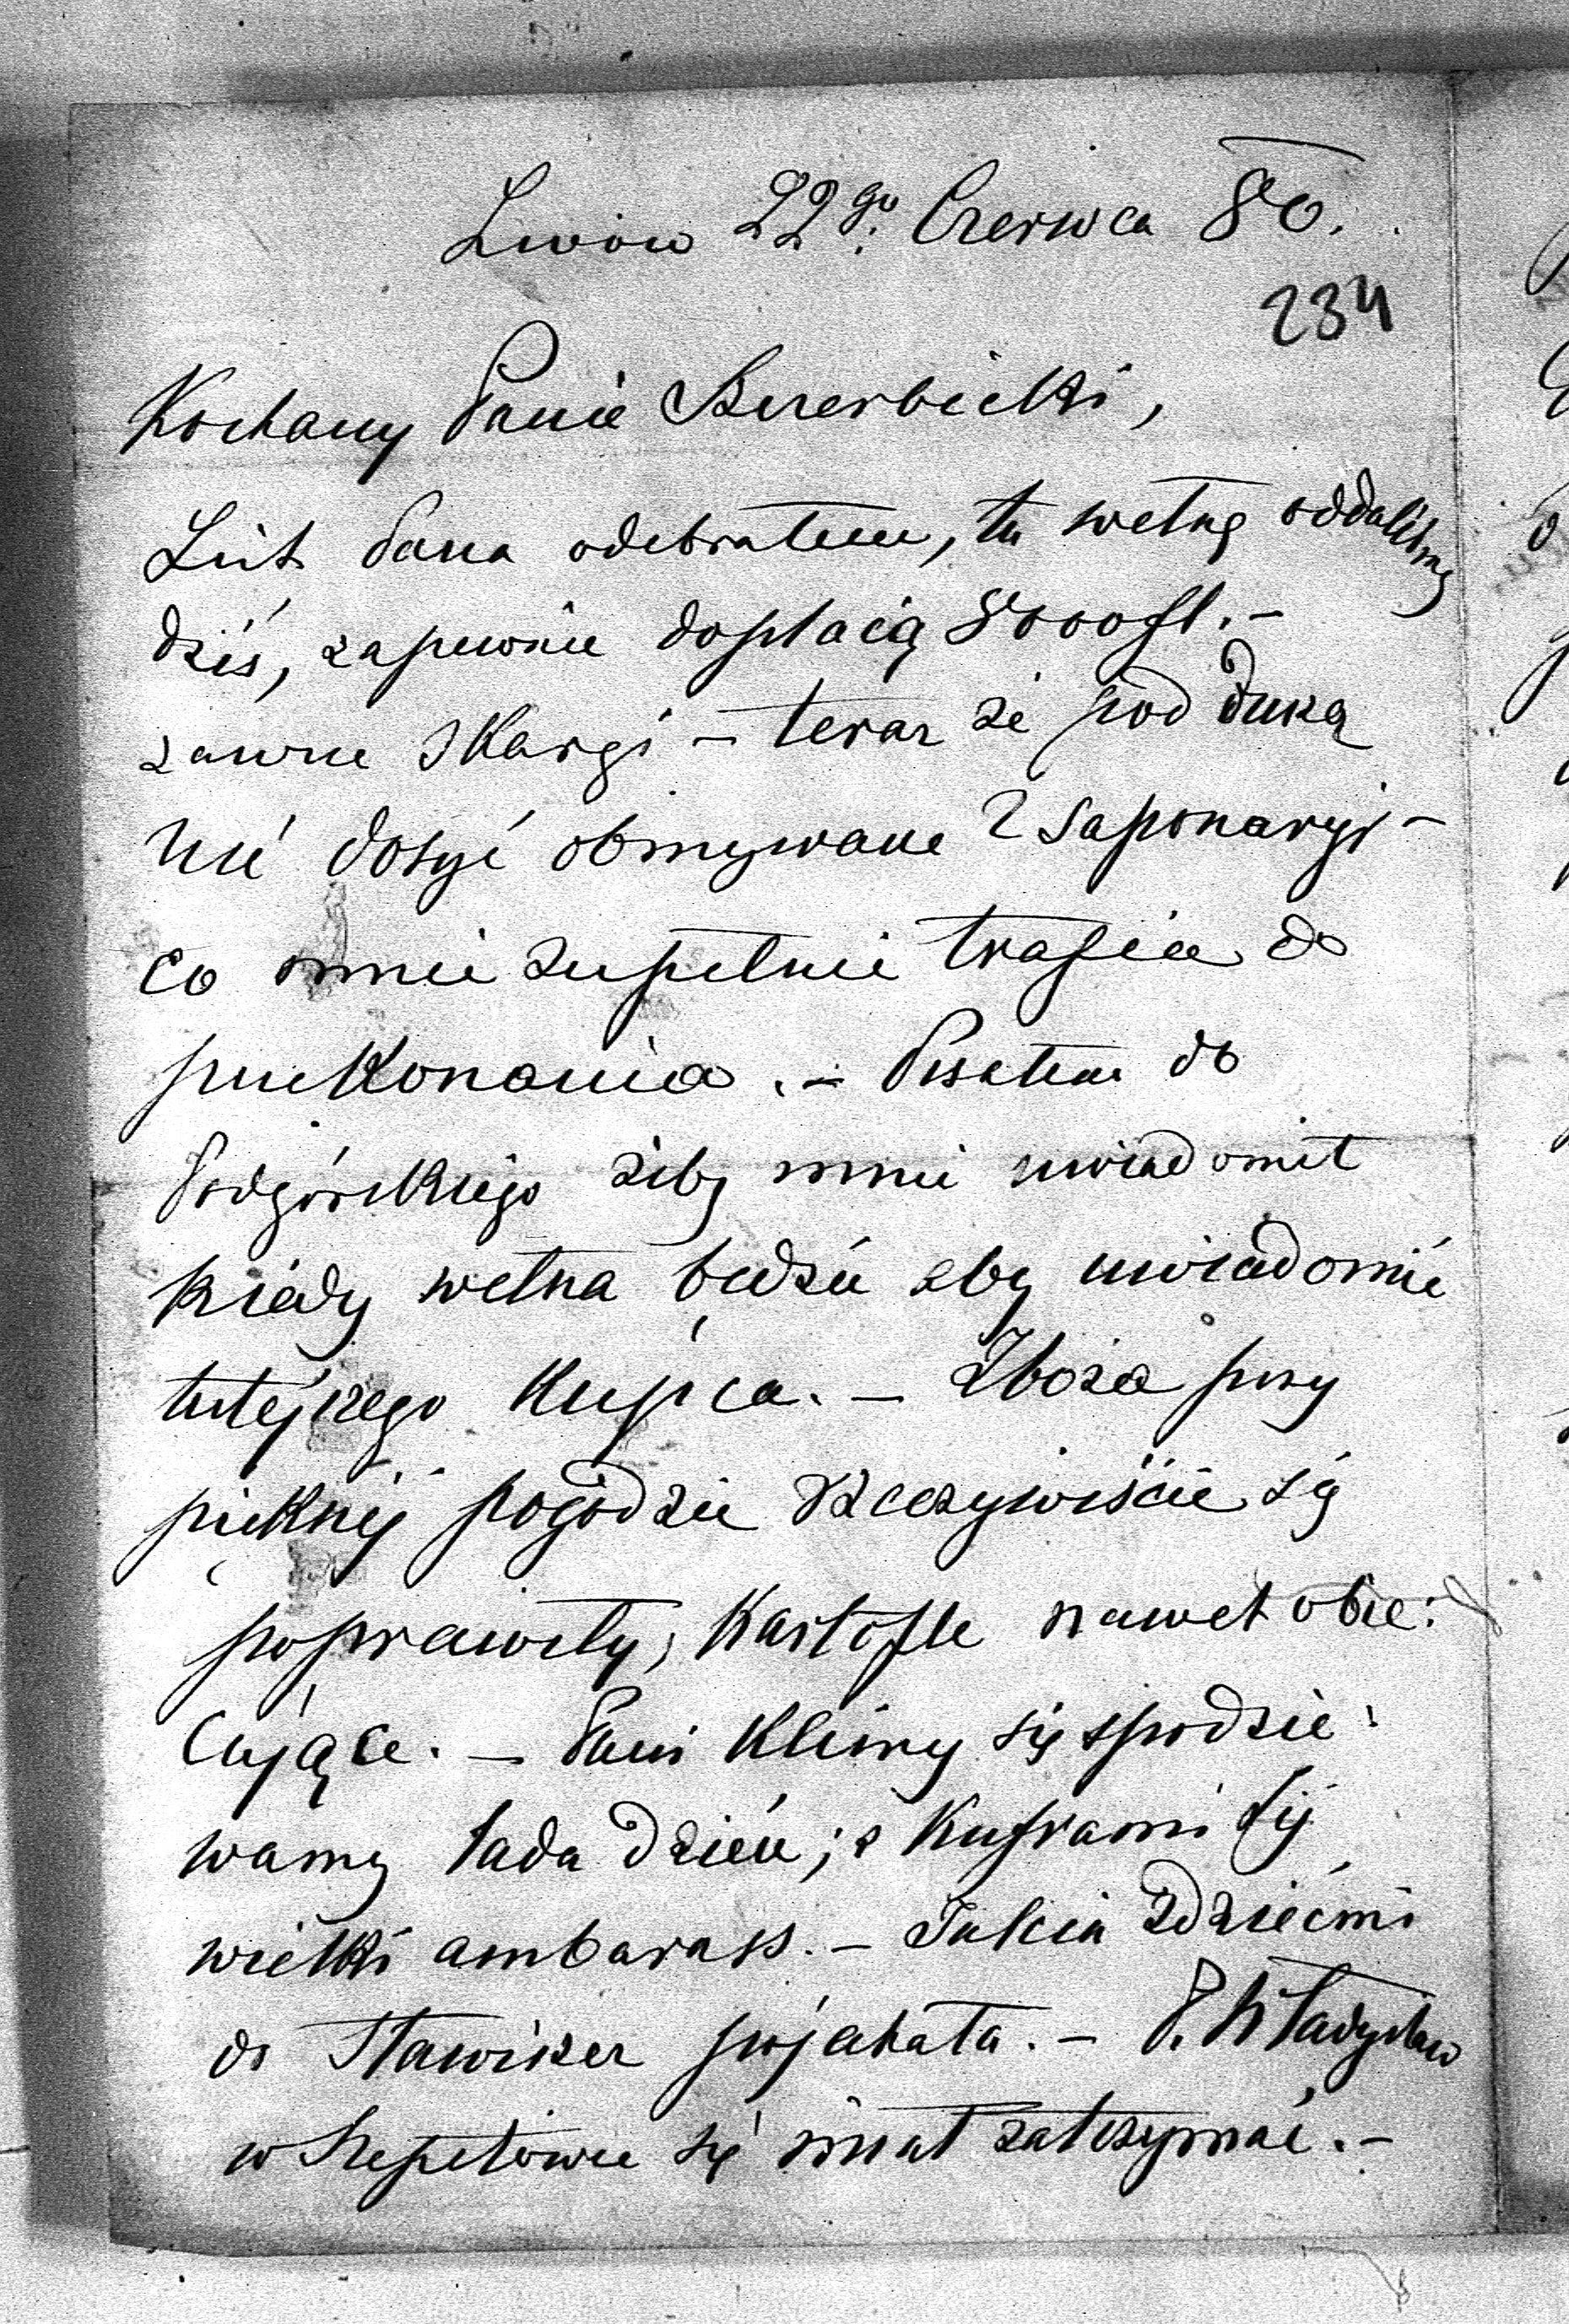 Lwów 22go. Czerwca 80.
234
Kochany Panie Szczerbicki,
List Pana odebrałem, tu wełnę oddaliśmy
dziś, zapewnie dopłacą 8000 fl. –
zawsze skargi – teraz że pod
nie dosyć obmywane z saponaryi –
co mnie zupełnie trafia do
przekonania. – Pisałem do
Podgórskiego żeby mnie uwiadomił
kiedy wełna będzie aby uwiadomić
tutejszego Kupca. – Zboża przy
pięknej pogodzie rzeczywiście się
poprawiły, Kartofle nawet obie:
cujące. – Pani Klimy się spodzie:
wamy lada dzień; z Kuframi Jej
wielki ambarass. – Julcia z dziećmi
do pojechała. – P. Władysław
w Szepetówce się miał zatrzymać. –